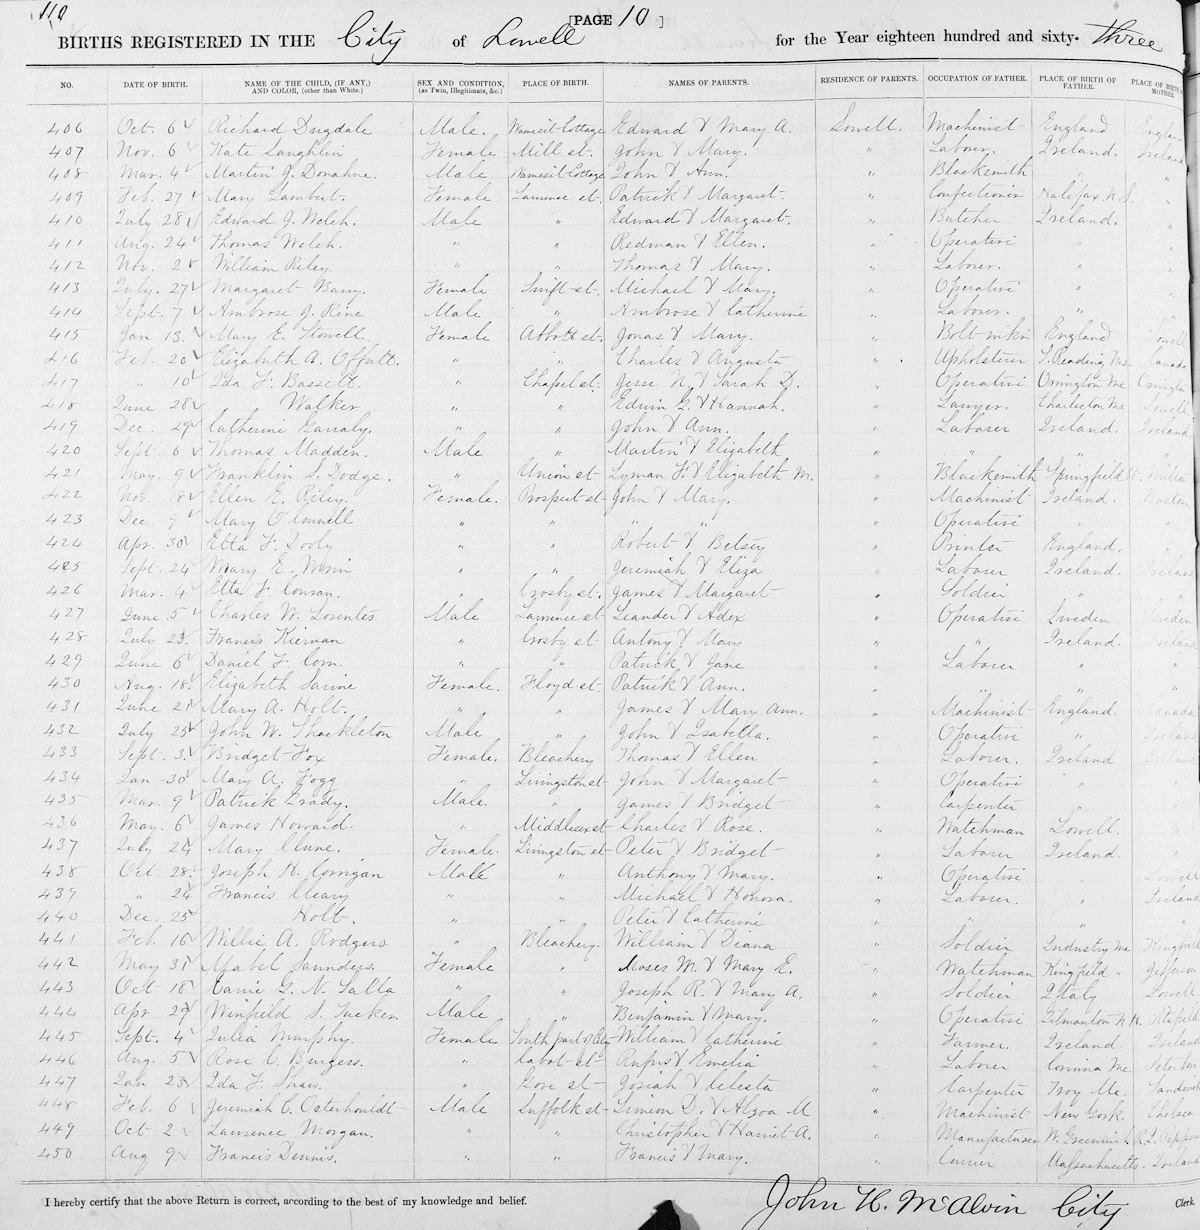 110
[PAGE 10 ]
BIRTHS REGISTERED IN THE City of Lowell for the Year eighteen hundred and sixty-three
NO. DATE OF BIRTH. NAME OF THE CHILD, (IF ANY,) AND COLOR, (other than White.) SEX AND CONDITION, (as Twin, Illegitimate, &c.) PLACE OF BIRTH. NAMES OF PARENTS. RESIDENCE OF PARENTS. OCCUPATION OF FATHER. PLACE OF BIRTH OF FATHER. PLACE OF BIRTH OF MOTHER.
406 Oct. 6 Richard Dugdale Male. Wamesit Cottage Edward & Mary A. Lowell. Machinist England England
407 Nov. 6 Kate Laughlin Female Mill st. John & Mary. " Laborer. Ireland. Ireland
408 Mar. 4 Martin J. Donahue. Male Wamesit Cottage John & Ann. " Blacksmith " "
409 Feb. 27 Mary Lambert. Female Lawrence st. Patrick & Margaret. " Confectioner Halifax N.S. "
410 July 28 Edward J. Welch. Male " Edward & Margaret. " Butcher Ireland. "
411 Aug. 24 Thomas Welch. " " Redman & Ellen. " Operative " "
412 Nov. 2 William Riley. " " Thomas & Mary. " Laborer. " "
413 July. 27 Margaret Barry. Female Swift st. Michael & Mary. " Operative " "
414 Sept. 7 Ambrose J. Rine Male " Ambrose & Catherine " Laborer. " "
415 Jan 13. Mary E. Stowell. Female Abbott st. Jonas & Mary. " Bolt mkr England Lowell
416 Feb. 20 Elizabeth A. Offutt. " " Charles & Augusta " Upholsterer S. Reading Ms. Canada
417 " 10 Ida F. Bassett. " Chapel st. Jesse N. & Sarah D. " Operative Orrington Me Orrington
418 June 28 Walker " " Edwin G. & Hannah. " Lawyer. Charleston Ms Lowell
419 Dec. 29 Catherine Garraly. " " John & Ann. " Laborer Ireland. Ireland
420 Sept. 6 Thomas Madden. Male " Martin & Elizabeth " " " "
421 May. 9 Franklin S. Dodge. " Union st Lyman F. & Elizabeth M. " Blacksmith Springfield Vt. Milton
422 Nov. 18 Ellen E. Riley. Female. Prospect st John & Mary. " Machinist Ireland. Boston
423 Dec. 9 Mary O'Connell " " " " " Operative " "
424 Apr. 30 Etta F. Dooly " " Robert & Betsey " Printer England. "
425 Sept. 24 Mary E. " " Jeremiah & Eliza " Laborer Ireland. Ireland
426 Mar. 4 Etta F. Conran. " Crosby st. James & Margaret " Soldier " "
427 June. 5 Charles W. Lorentes Male Lawrence st Leander & Adex " Operative Sweden Sweden
428 July 23. Francis Kiernan " Crosby st Antony & Mary " " Ireland. Ireland
429 June 6 Daniel F. Corn. " " Patrick & Jane " Laborer " "
430 Aug. 18. Elizabeth Larine Female. Floyd st Patrick & Ann. " " " "
431 June 21 Mary A. Holt. " " James & Mary Ann. " Machinist England. Canada
432 July 25 John W. Shackleton Male " John & Isabella. " Operative " Ireland
433 Sept. 3. Bridget Fox Female. Bleachery Thomas & Ellen " Laborer. Ireland Ireland
434 Jan 30 Mary A. Fogg " Livingston st John & Margaret " Operative " "
435 Mar. 9 Patrick Grady. Male. " James & Bridget " Carpenter " "
436 May. 6 James Howard. " Middlesex st Charles & Rose. " Watchman Lowell. "
437 July 24 Mary Clune. Female. Livingston st Peter & Bridget " Laborer Ireland. "
438 Oct. 28. Joseph H. Corrigan Male " Anthony & Mary. " Operative " Lowell
439 " 24 Francis Cleary " " Michael & Honora. " Laborer. " Ireland
440 Dec. 25 Holt. " " Peter & Catherine " " " "
441 Feb. 16 Willie A. Rodgers " Bleachery. William & Diana " Soldier Industry Me Kingfield
442 May 31 Mabel Saunders. Female " Moses M. & Mary E. " Watchman Kingfield " Jefferson
443 Oct 18 Carrie G. N. Salla " " Joseph R. & Mary A. " Soldier Italy Lowell
444 Apr 29 Winfield S. Tucker Male " Benjamin & Mary. " Operative Gilmanton N.H. Pittsfield
445 Sept. 4 Julia Murphy. Female South part of City William & Catherine " Farmer. Ireland. Ireland
446 Aug. 5 Rose C. Burgess. " Cabot st Rufus & Emelia " Laborer Corinna Me.
447 Jan 23 Ida F. Shaw. " Gore st Josiah & Celesta " Carpenter Troy Me. Sandwich
448 Feb. 6 Jeremiah C. Osterhouldt Male Suffolk st Simeon D. & Alzoa M " Machinist New York. Chelsea
449 Oct 2 Lawrence Morgan. " " Christopher & Harriet A. " Manufacturer W. Greenwich R.I. Pepperell
450 Aug 9 Francis Dennis. " " Francis & Mary. " Currier Massachusetts. Ireland
I hereby certify that the above Return is correct, according to the best of my knowledge and belief. John H. McAlvin City Clerk.